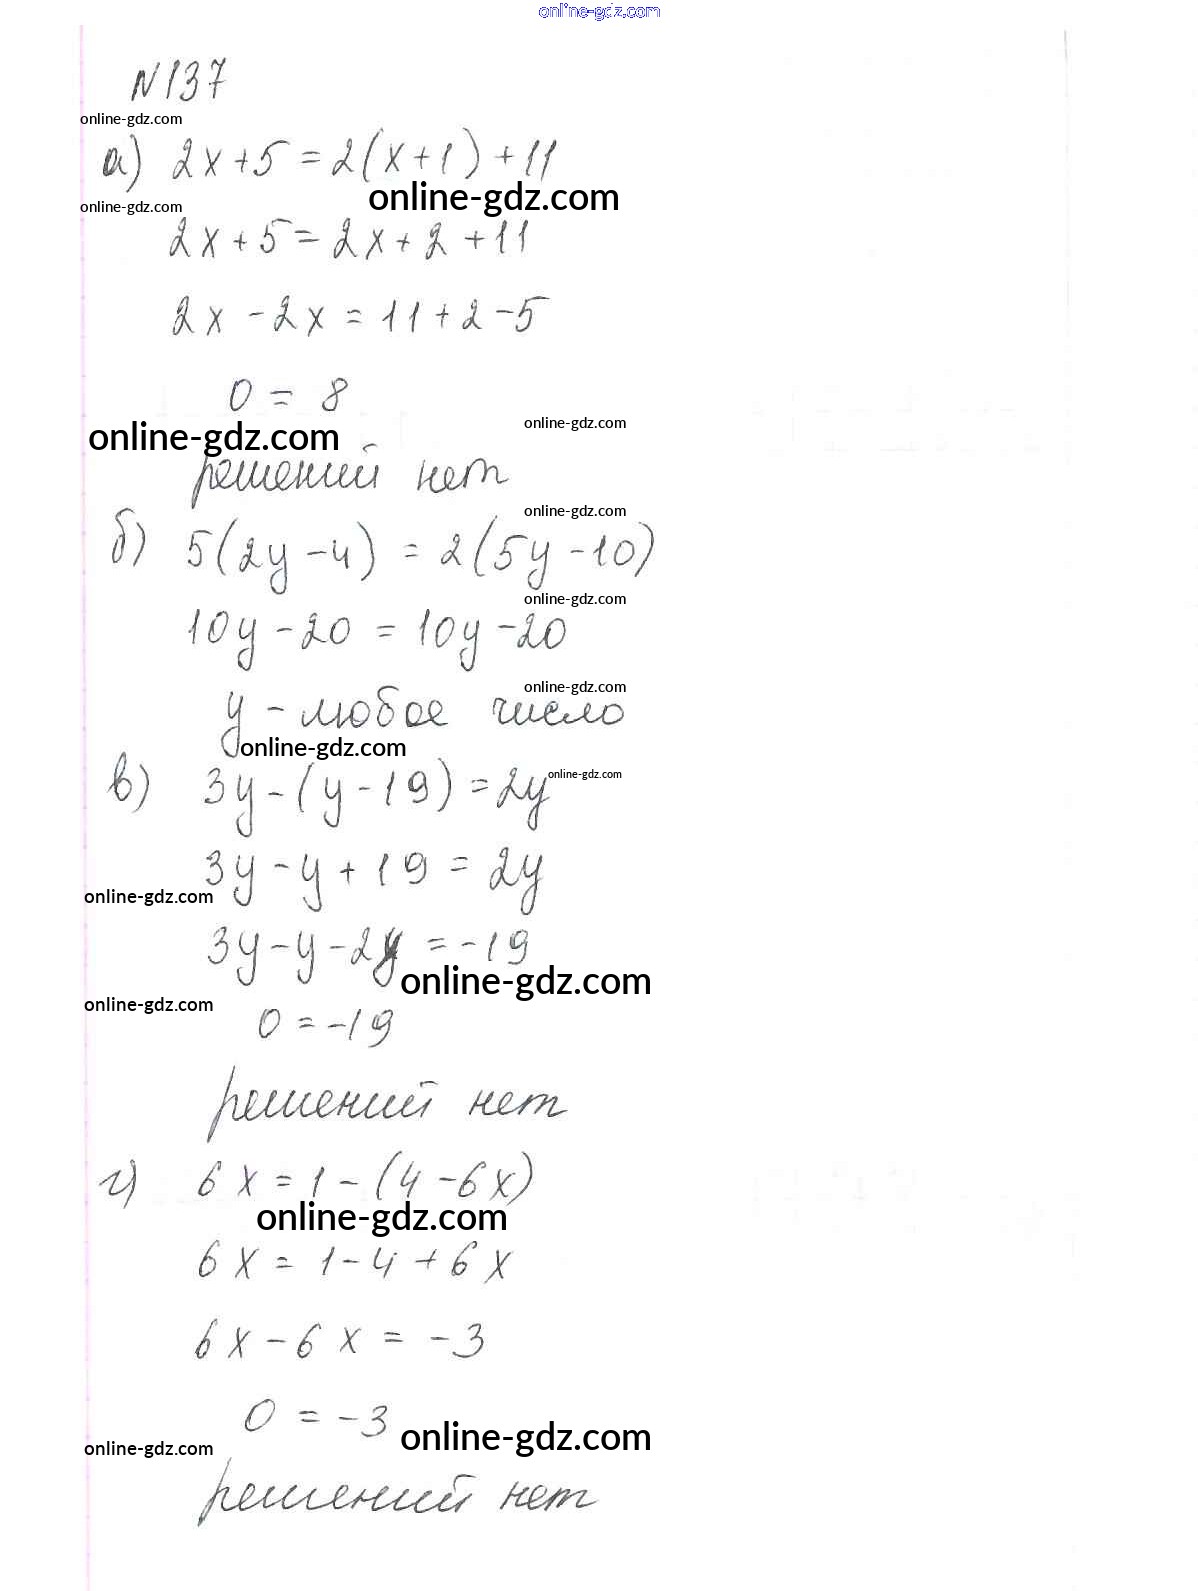 online-gdz.com
N 137
online-gdz.com
а) 2x+5=2(x+1)+11
online-gdz.com
online-gdz.com
2x+5=2x+2+11
2x-2x=11+2-5
0=8
online-gdz.com
online-gdz.com
решений нет
online-gdz.com
б) 5(2y-4)=2(5y-10)
online-gdz.com
10y-20=10y-20
online-gdz.com
y-любое число
online-gdz.com
online-gdz.com
в) 3y-(y-19)=2y
3y-y+19=2y
online-gdz.com
3y-y-2y=-19
online-gdz.com
online-gdz.com
0=-19
решений нет
г) 6x=1-(4-6x)
online-gdz.com
6x=1-4+6x
6x-6x=-3
0=-3
online-gdz.com
online-gdz.com
решений нет